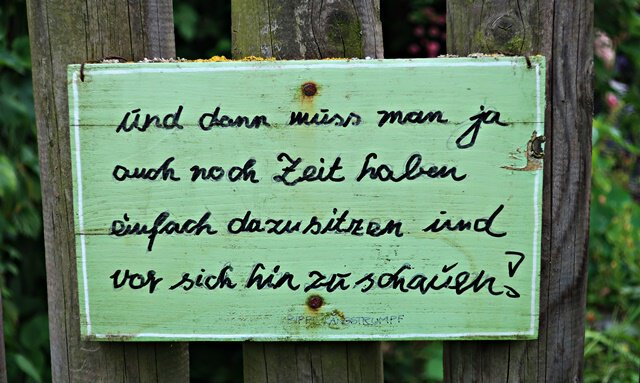 und dann muss man ja
auch noch Zeit haben
einfach dazusitzen und
vor sich hin zu schauen!
PIPPI LANGSTRUMPF